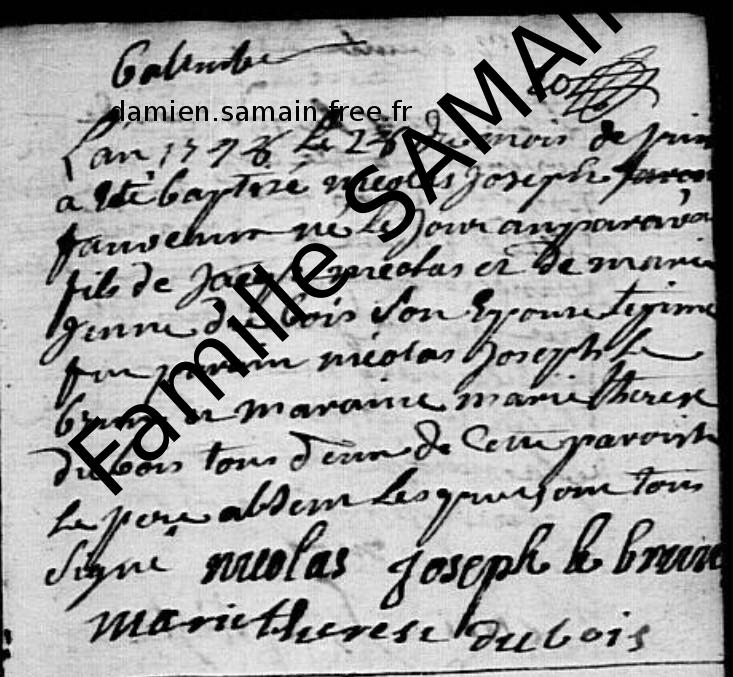 damien.samain.free.fr
Famille SAMAIN
L'an 17 le 28 du mois de
a été baptisé nicolas Joseph
né le Jour auparava
fils de nicolas et de marie
du bois Son Epouse legime
fut parain nicolas Joseph le
brun et maraine marie therese
dubois tous deux de Cette paroisse
le pere absent Lesquels ont tous
Signé nicolas Joseph le brun
marie therese dubois